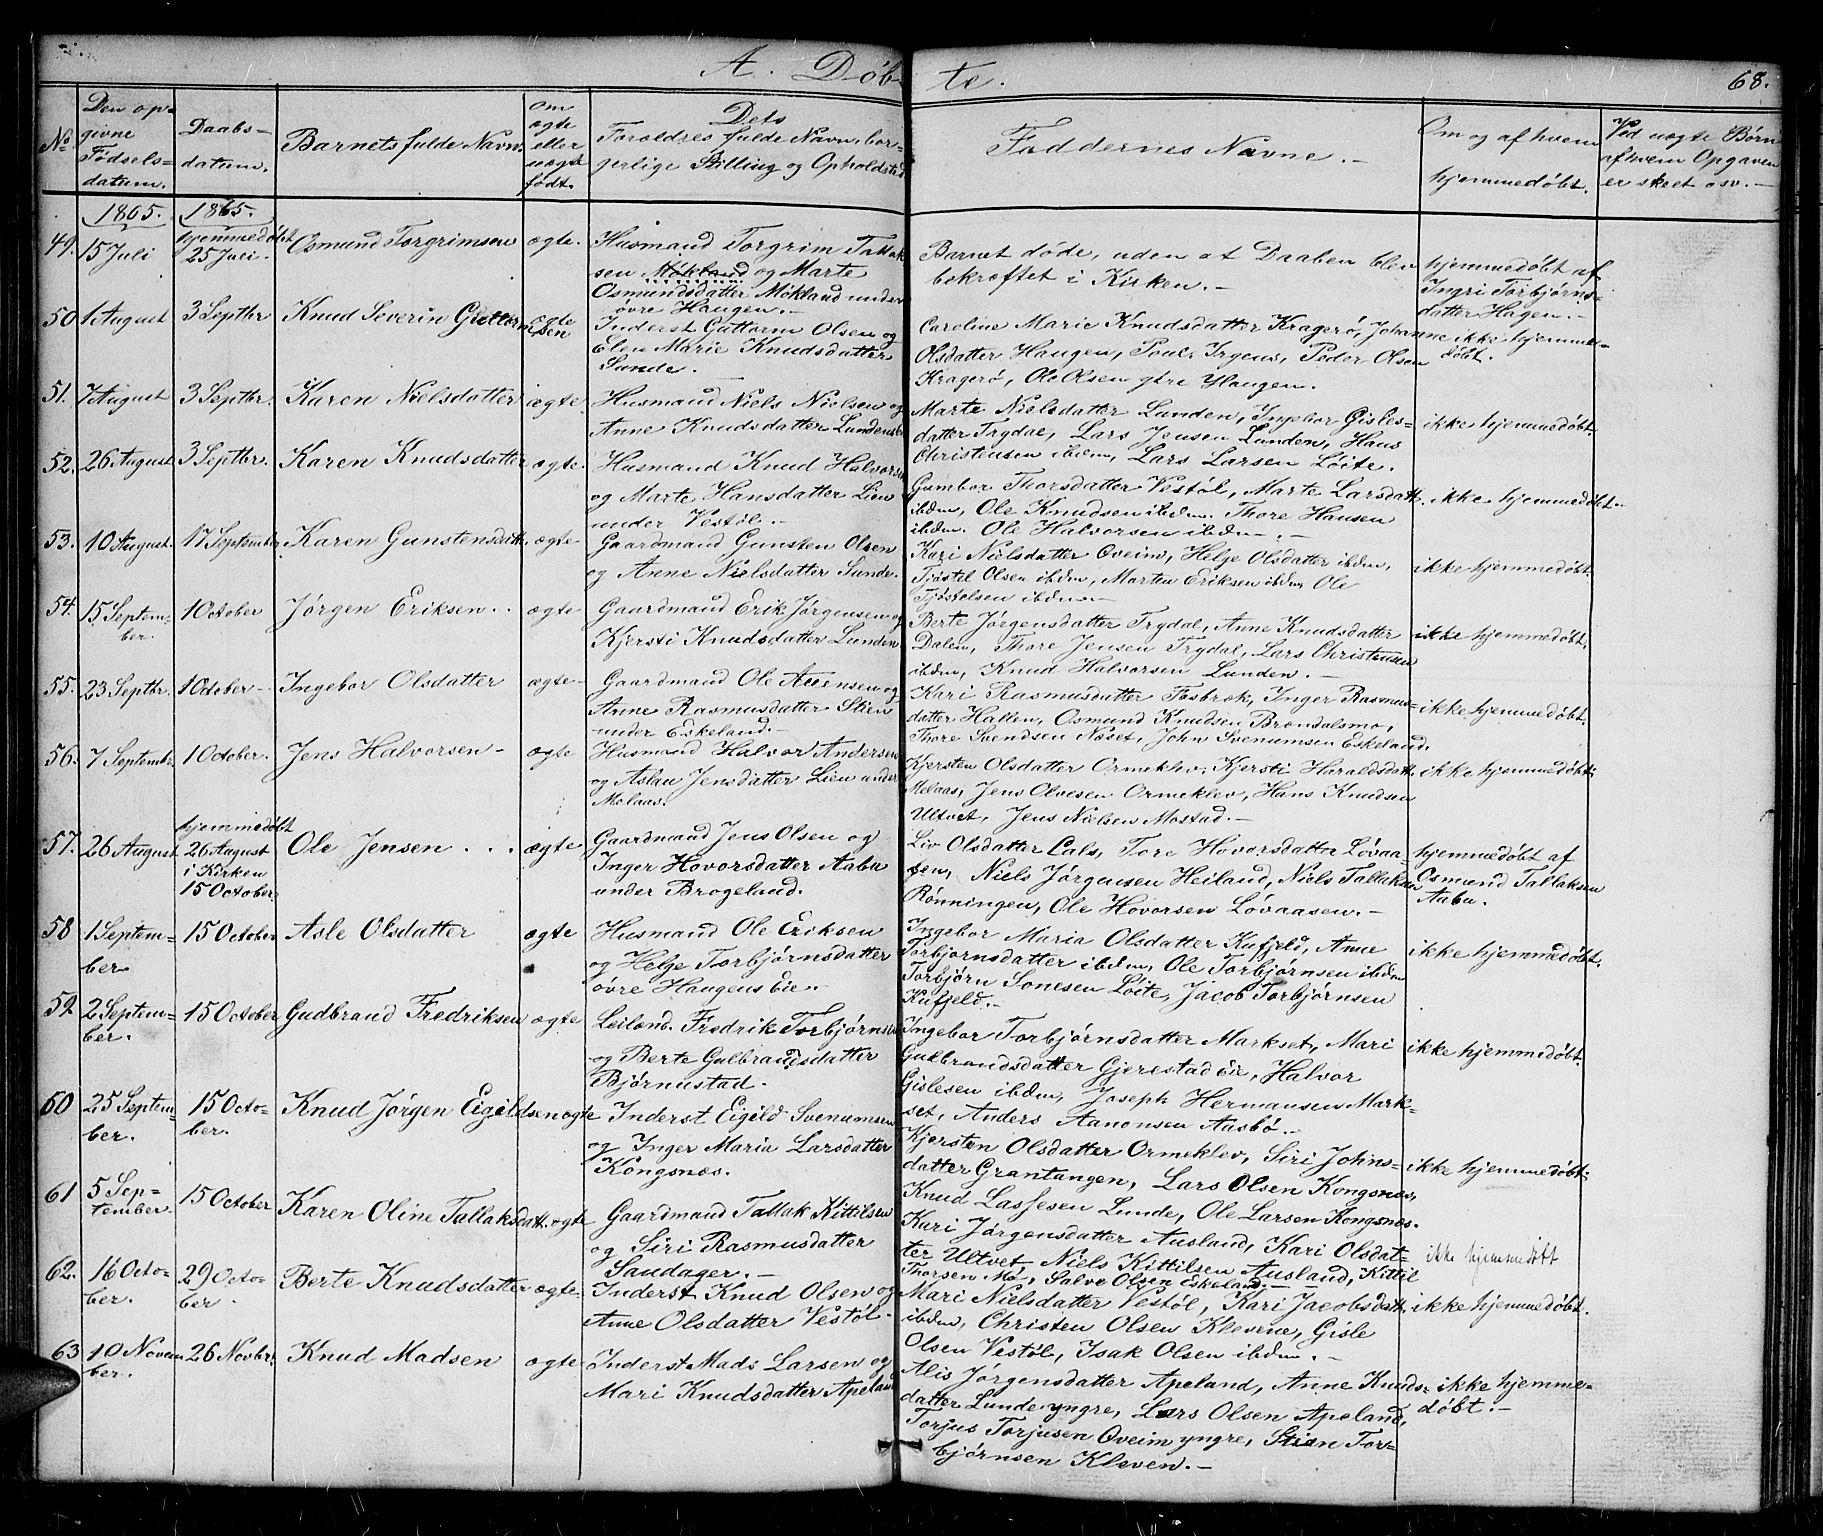 A. Døb-te.
68.
No
Den op-
givne
Fødsels-
datum.
Daabs-
datum.
Barnets fulde Navn.
om
ægte
eller
uægte
født.
Dets
Foreldres fulde Navn, bor-
gerlige Stilling og Opholdsted
Faddernes Navne.-
Om og af hvem
hjemmedøbt.
Ved uægte Børn
af hvem Opgaven
er skeet osv.-
1865.
1865.
49. 15 Juli
hjemmedøbt
25 Juli.
Osmund Torgrimsen
ægte.
Husmand Torgrim Tallak
sen Møkland og Marte
Osmundsdatter Møkland under
øvre Haugen.-
Barnet døde, uden at Daaben blev
bekræftet i Kirken.-
hjemmedøbt af
Ingri Torbjørns-
datter Hagen.-
50 1 August 3 Septbr Knud Severin Guttorm
sen
ægte
Inderst Guttorm Olsen og
Elen Marie Knudsdatter
Sunde.
Caroline Marie Knudsdatter Kragerø, Johanne
Olsdatter Haugen, Poul Irgens, Peder Olsen
Kragerø, Ole Olsen ytre Haugen.
ikke hjemme-
døbt.
51. 7 August 3 Septbr. Karen Nielsdatter ægte.
Husmand Niels Nielsen og
Anne Knudsdatter Lunden
Marte Nielsdatter Lunden, Ingebor Gisles-
datter Trydal, Lars Jensen Lunden, Hans
Christensen ibdm, Lars Larsen Løite.
ikke hjemmedøbt.
52. 26 August 3 Septbr. Karen Knudsdatter ægte.
Husmand Knud Halvorsen
og Marte Hansdatter Lien
under Vestøl.-
Gumbor Thorsdatter Vestøl, Marte Larsdatt.
ibdm, Ole Knudsen ibdm. Thore Hansen
ibdm. Ole Halvorsen ibdm.-
ikke hjemmedøbt.-
53. 10 August. 17 September Karen Gunstensdatt. ægte
Gaardmand Gunsten Olsen
og Anne Nielsdatter Sunde.
Kari Nielsdatter Oveim, Helje Olsdatter ibdm,
Tjøstel Olsen ibdm, Morten Eriksen ibdm, Ole
Tjøstolsen ibdm.-
ikke hjemmedøbt.
54. 15 Septem-
ber.
1 October Jørgen Eriksen.. ægte
Gaardmand Erik Jørgensen og
Kjersti Knudsdatter Lunden
Berte Jørgensdatter Trydal, Anne Knudsdatter
Dalen, Thore Jensen Trydal, Lars Christensen
ibdm, Knud Halvorsen Lunden.-
ikke hjemmedøbt.
55. 23 Septbr. 1 October- Ingebor Olsdatter ægte-
Gaardmand Ole Aslensen og
Anne Rasmusdatter Stien
under Eskeland.-
Kari Rasmusdatter Fosbrek, Inger Rasmus-
datter Hallen, Osmund Knudsen Brøndalsmo,
Thore Svendsen Neset, John Svenumsen Eskeland.
ikke hjemmedøbt.
56. 7 Septembr. 1 October. Jens Halvorsen- ægte
Husmand Halvor Andersen
og Aslau Jensdatter Lien under
Melaas.
Kjersten Olsdatter Ormeklev, Kjersti Haraldsdatt.
Melaas, Jens Olvesen Ormeklev, Hans Knudsen
Ultvet, Jens Nielsen Mostad.-
ikke hjemmedøbt.
57. 26 August
hjemmedøbt
26 August
i Kirken
15 October
Ole Jensen... ægte
Gaardmand Jens Olsen og
Inger Hovorsdatter Aabu
under Brogeland.
Liv Olsdatter Cals, Tore Hovorsdatter Løvaa-
sen, Niels Jørgensen Heiland, Niels Tallaksen
Rønningen, Ole Hovorsen Løvaasen.-
hjemmedøbt af
Osmund Tallaksen
Aabu.
58 1 Septem-
ber
15 October Asle Olsdatter ægte
Husmand Ole Eriksen
og Helge Torbjørnsdatter
øvre Haugens Eie.-
Ingebor Maria Olsdatter Kufjeld, Anne
Torbjørnsdatter ibdm, Ole Torbjørnsen ibdm
Torbjørn Sonesen Løite, Jacob Torbjørnsen
Kufjeld.-
ikke hjemmedøbt.
59. 2 Septem-
ber.
15 October Gudbrand Fredriksen ægte
Leilænd. Fredrik Torbjørnsen
og Berte Gulbrandsdatter
Bjørnustad.
Ingebor Torbjørnsdatter Markset, Mari
Gulbrandsdatter Gjerestad Eie, Halvor
Gislesen ibdm, Joseph Hermansen Mark-
set, Anders Aanonsen Ausbø.-
ikke hjemmedøbt.
60 25 Septem-
ber.
15 Octo-
ber.
Knud Jørgen Eigildsen ægte
Inderst Eigild Svenumsen
og Inger Maria Larsdatter
Kongsnæs.
Kjersten Olsdatter Ormeklev, Siri Johns-
datter Grantangen, Lars Olsen Kongsnæs,
Knud Lassesen Lunde, Ole Larsen Kongsnæs.
ikke hjemmedøbt.
61 5 Sep-
tember.
15 October Karen Oline Tallaksdatt. ægte
Gaardmand Tallak Kittilsen
og Siri Rasmusdatter
Saudager.-
Kari Jørgensdatter Ausland, Kari Olsdat-
ter Ultvet, Niels Kittilsen Ausland, Kittil
Thorsen Mo, Salve Olsen Eskeland.-
ikke hjemmedøbt
62. 16 Octo-
ber.
29 Octo-
ber.
Berte Knudsdatter ægte.
Inderst Knud Olsen og
Anne Olsdatter Vestøl.
Mari Nielsdatter Vestøl, Kari Jacobsdatt.
ibdm, Christen Olsen Klevene, Gisle
Olsen Vestøl, Isak Olsen ibdm.-
ikke hjemmedøbt.
63 10 Novem-
ber.
26 Novbr. Knud Madsen ægte
Inderst Mads Larsen og
Mari Knudsdatter Apeland
Alis Jørgensdatter Apeland, Anne Knuds-
datter Lunde yngre, Lars Olsen Apeland,
Torjus Torjusen Oveim yngre, Stian Tor-
bjørnsen Kleven.-
ikke hjemme-
døbt.-